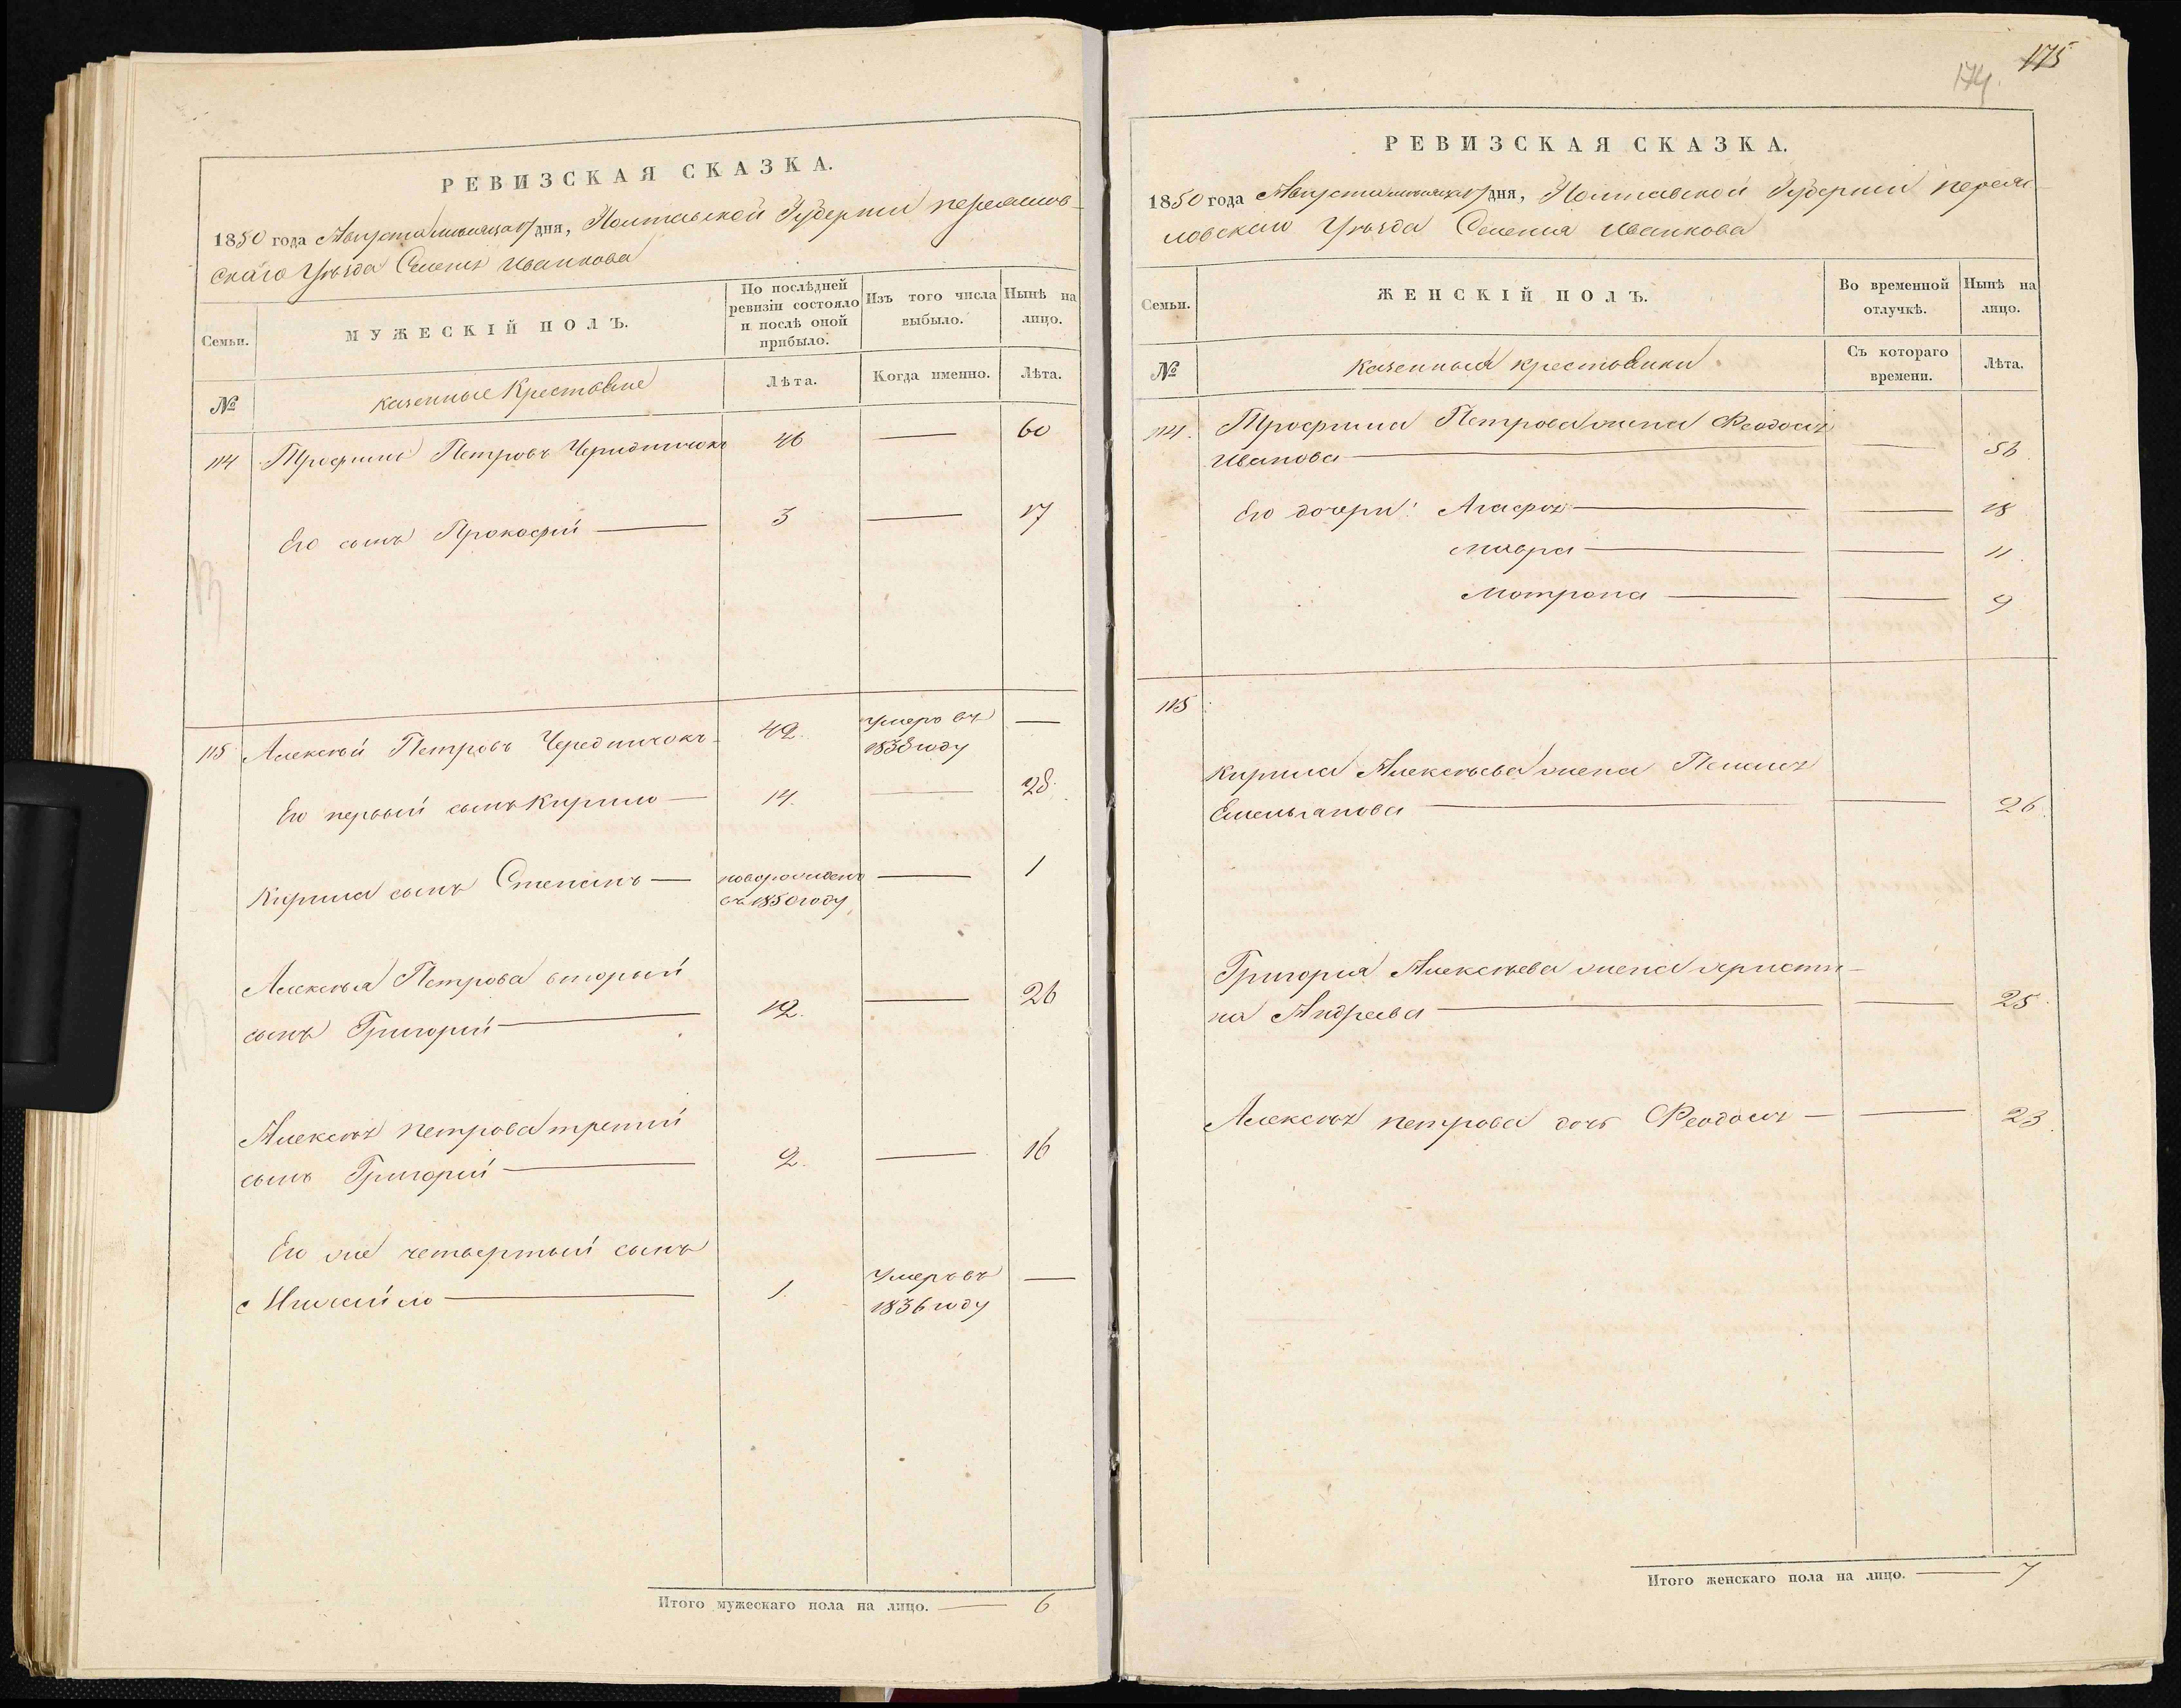 РЕВИЗСКАЯ СКАЗКА.
1850 года Августа месяца 17 дня, Полтавской Губернии переяслов-
скаго Уѣзда Селенія Иванкова
Семьи.
МУЖЕСКІЙ ПОЛЪ.
По послѣдней
ревизіи состояло
и послѣ оной
прибыло.
Изъ того числа
выбыло.
Нынѣ на
лицо.
№
казенные Крестьяне
Лѣта.
Когда именно.
Лѣта.
114 Трофимъ Петровъ Чередничокъ 46 — 60
Его сынъ Прокофій — 3 — 17
115 Алексѣй Петровъ Чередничокъ 42. умеръ въ —
1838 году
Его первый сынъ Кирило — 14. — 28.
Кирила сынъ Степанъ — новорожденъ — 1
въ 1850 году
Алексѣя Петрова вторый
сынъ Григорій — 12. — 26
Алексѣя петрова третій
сынъ Григорій — 2. — 16
Его же четвертый сынъ
Михайло — 1. Умеръ въ —
1836 году
Итого мужескаго пола на лицо. — 6
175
174.
РЕВИЗСКАЯ СКАЗКА.
1850 года Августа месяца 17 дня, Полтавской Губерніи переяс-
ловскаго Уѣзда Селенія Иванкова
Семьи.
ЖЕНСКІЙ ПОЛЪ.
Во временной
отлучкѣ.
Нынѣ на
лицо.
№
казенныя крестьянки
Съ котораго
времени.
Лѣта.
114. Трофима Петрова жена Феодосія
Иванова — — 56
Его дочери: Агафія — — 18
Мавра — — 11.
Мотрона — — 9
115
Кирила Алексѣева жена Пелагія
Емельянова — — 26.
Григорія Алексѣева жена христи-
на Андреева — — 25.
Алексѣя петрова дочь Феодосія — — 23.
Итого женскаго пола на лицо. — 7